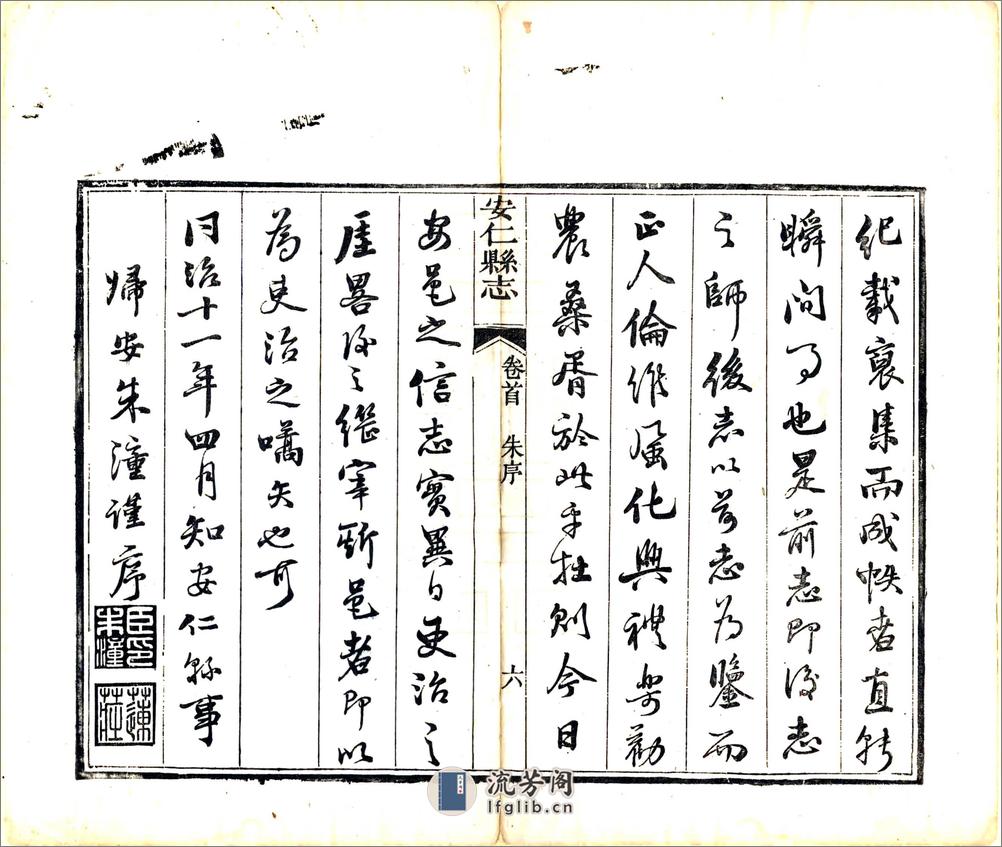 紀載裒集而成帙者直轉
瞬間事也是前志即後志
之師後志以前志為鑒而
正人倫維風化興禮樂勸
農桑胥於此乎在則今日
安仁縣志
卷首 朱序 六
安邑之信志實異日吏治之
厓畧後之繼宰斯邑者即以
為吏治之嚆矢也可
同治十一年四月知安仁縣事
歸安朱潼謹序
臣印朱潼
蓮莊
流芳阁
lfglib.cn